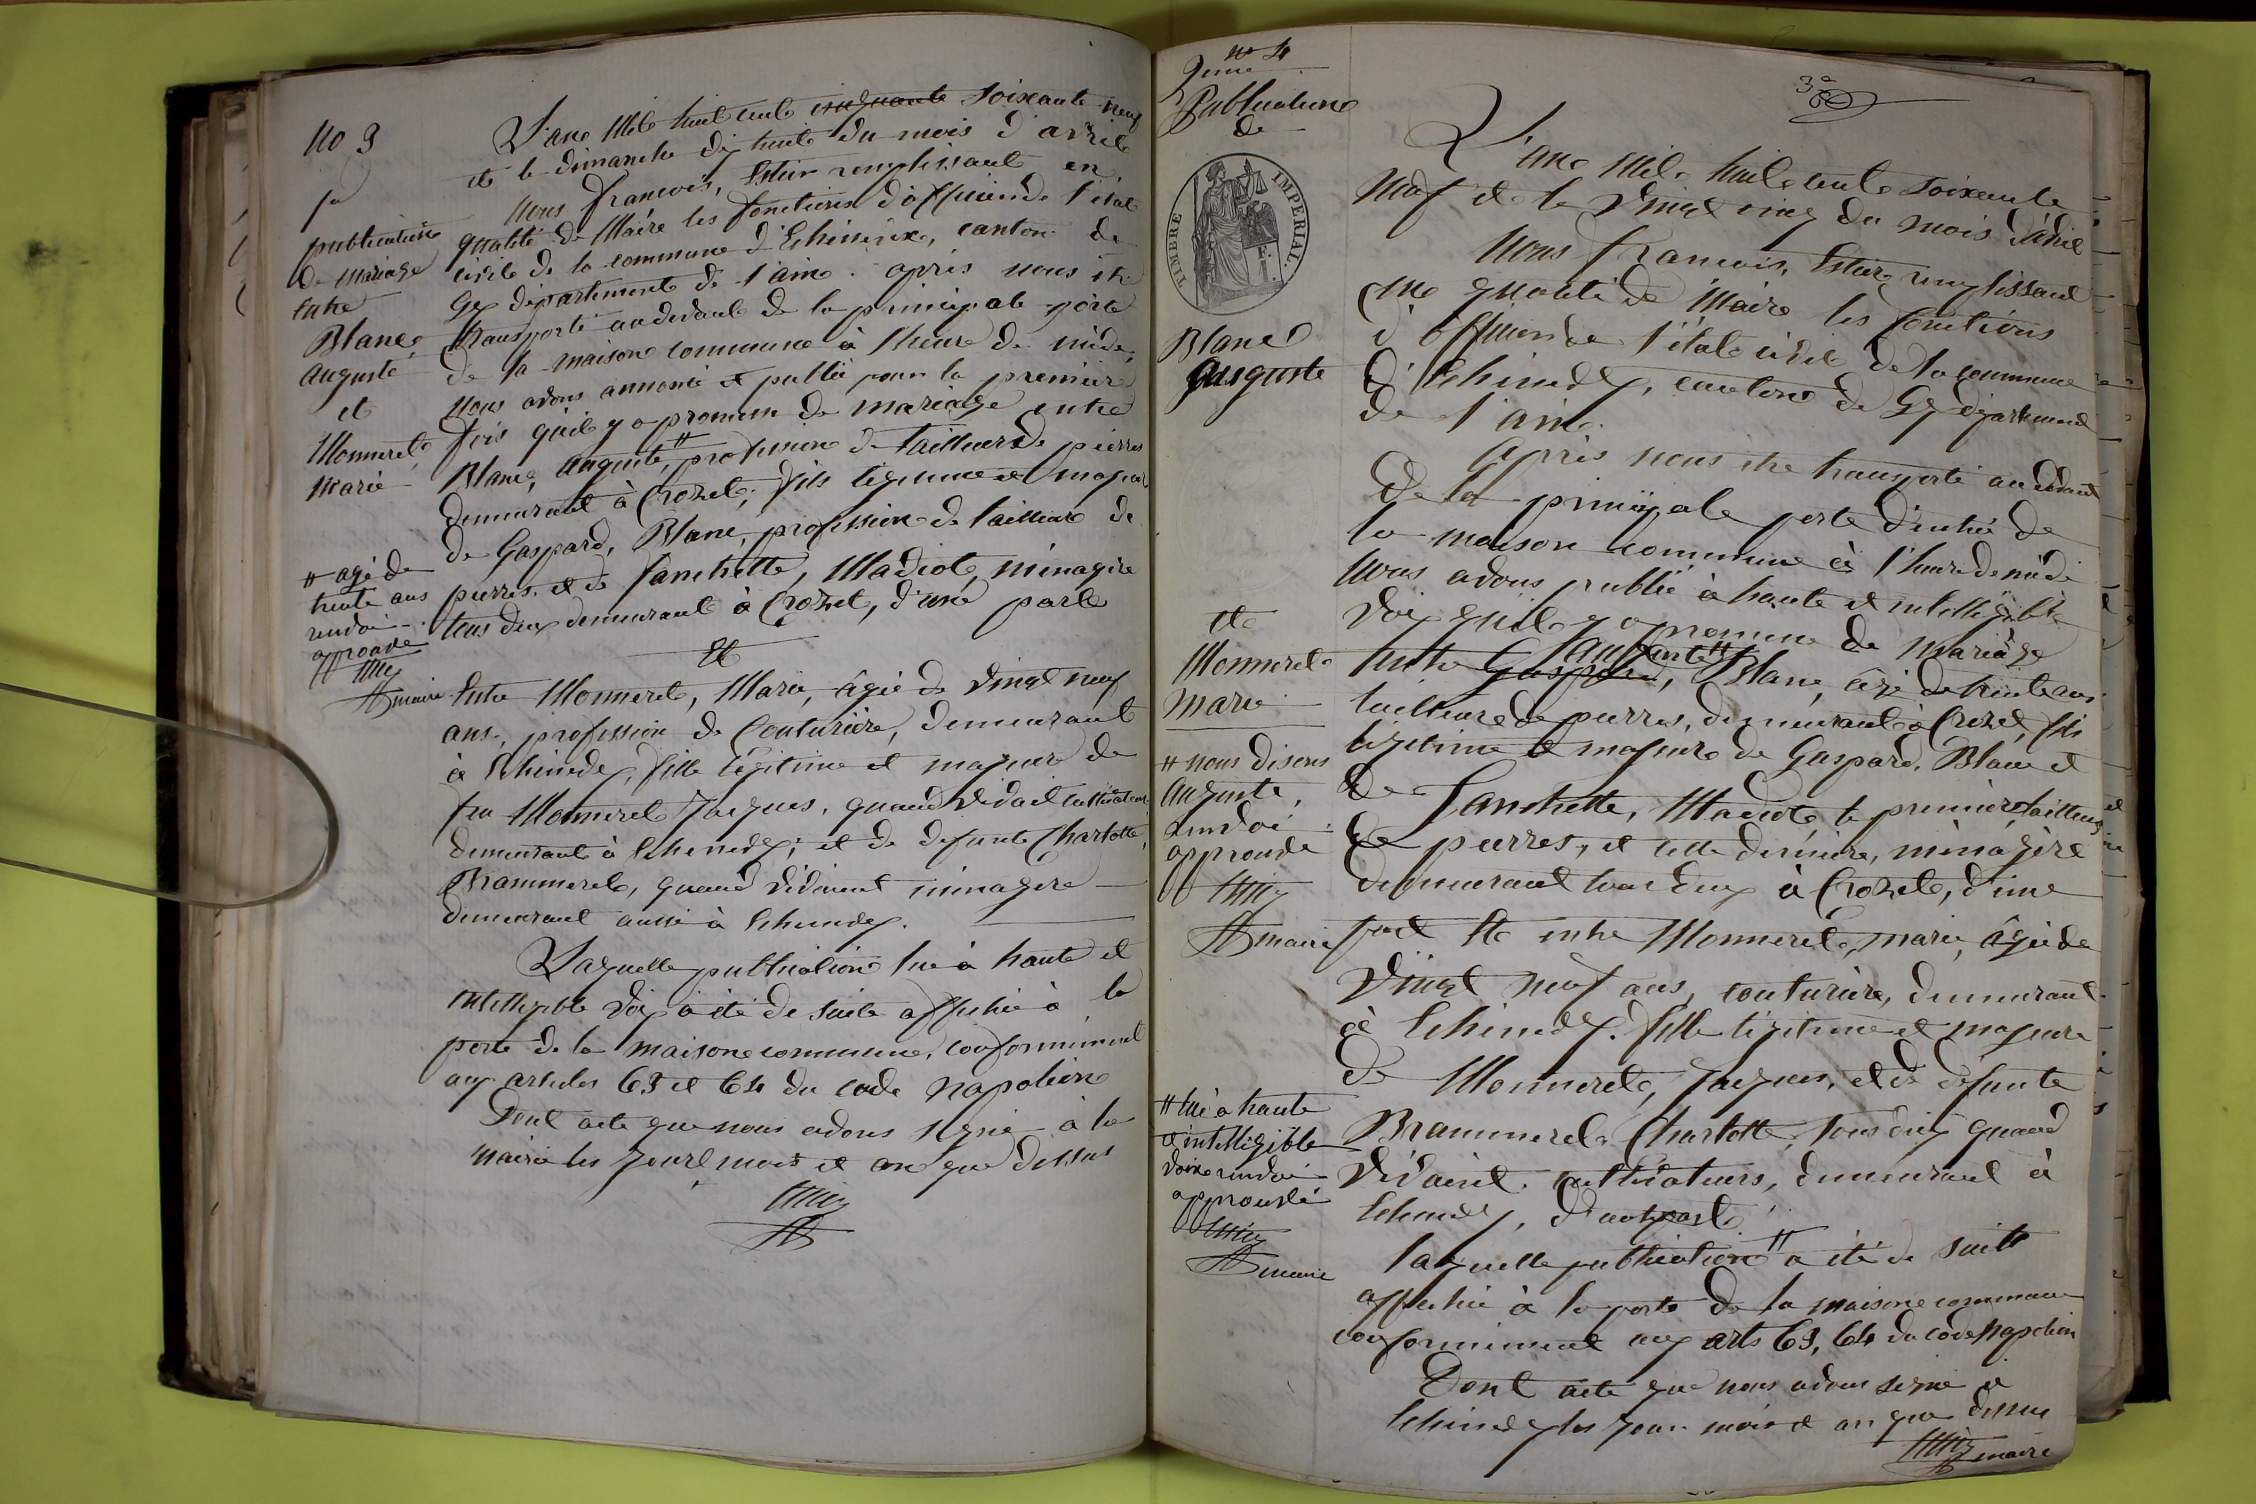 No 3
1re
publication
de mariage
entre
Blanc,
auguste
et
Monneret,
marie
# agé de
trente ans
renvoi
approuvé
maire
L'an Mil huit cent cinquante soixante neuf
et le dimanche dix huit du mois d'avril
Nous françois, Estier remplissant en
qualité de Maire les fonctions d'officier de l'état
civil de la commune d'Echenevex, canton de
Gex département de l'ain. après nous être
transporté au devant de la principale porte
de la maison commune à l'heure de midi,
Nous avons annoncé et publié pour la première
fois qu'il y a promesse de mariage entre
Blanc, auguste,# profession de tailleur de pierres
demeurant à Crozet, fils légitime et majeur
de Gaspard, Blanc, profession de tailleur de
pierres, et de fanchette, Madiot, ménagère
tous deux demeurant à Crozet, d'une part
Et
Entre Monneret, Marie, âgée de vingt neuf
ans, profession de Couturière, demeurant
à Echenevex, fille légitime et majeure de
feu Monneret Jacques, quand vivait cultivateur
demeurant à Echenevex; et de defunte Charlotte,
Brammerel, quand vivaient ménagère
demeurant aussi à Echenevex.
Laquelle publication lue à haute et
intelligible voix à été de suite affichée à la
porte de la maison commune, conformément
aux articles 63 et 64 du code Napoléon
Dont acte que nous avons signé à la
mairie les jour mois et an que dessus
no 4
2eme
Publication
de
TIMBRE IMPERIAL.
Blanc
auguste
et
Monneret
marie
# nous disons
auguste,
renvoi
approuvé
maire
# lue à haute
et intelligible
voix renvoi
approuvé
maire
3e
L'an mil huit cent soixante
neuf et le vingt cinq du mois d'avril
Nous françois, Estier remplissant
en qualité de Maire les fonctions
d'officier de l'état civil de la commune
d'Echenevex, canton de Gex département
de l'ain.
après nous être transporté au devant
de la principale porte d'entrée de
la maison commune à l'heure de midi
Nous avons publié à haute et intelligible
voix qu'il y a promesse de mariage
entre Gaspard, Blanc, âgé de trente ans
tailleur de pierres, demeurant à Crozet, fils
légitime et majeure de Gaspard, Blanc et
de Fanchette, Madiot, le premier tailleur
de pierres, et cette dernière, ménagère
demeurant tous deux à Crozet, d'une
part Et entre Monneret, marie, âgée de
vingt neuf ans, couturière, demeurant
à Echenevex. fille légitime et majeure
de Monneret, Jacques, et de defunte
Brammerel Charlotte, tous deux quand
vivaient cultivateurs, demeurant à
Echenevex, d'autre part
laquelle publication# a été de suite
affichée à la porte de la maison commune
conformément aux arts 63, 64 du code Napoléon
Dont acte que nous avons signé à
Echenevex les jour mois et an que dessus
maire